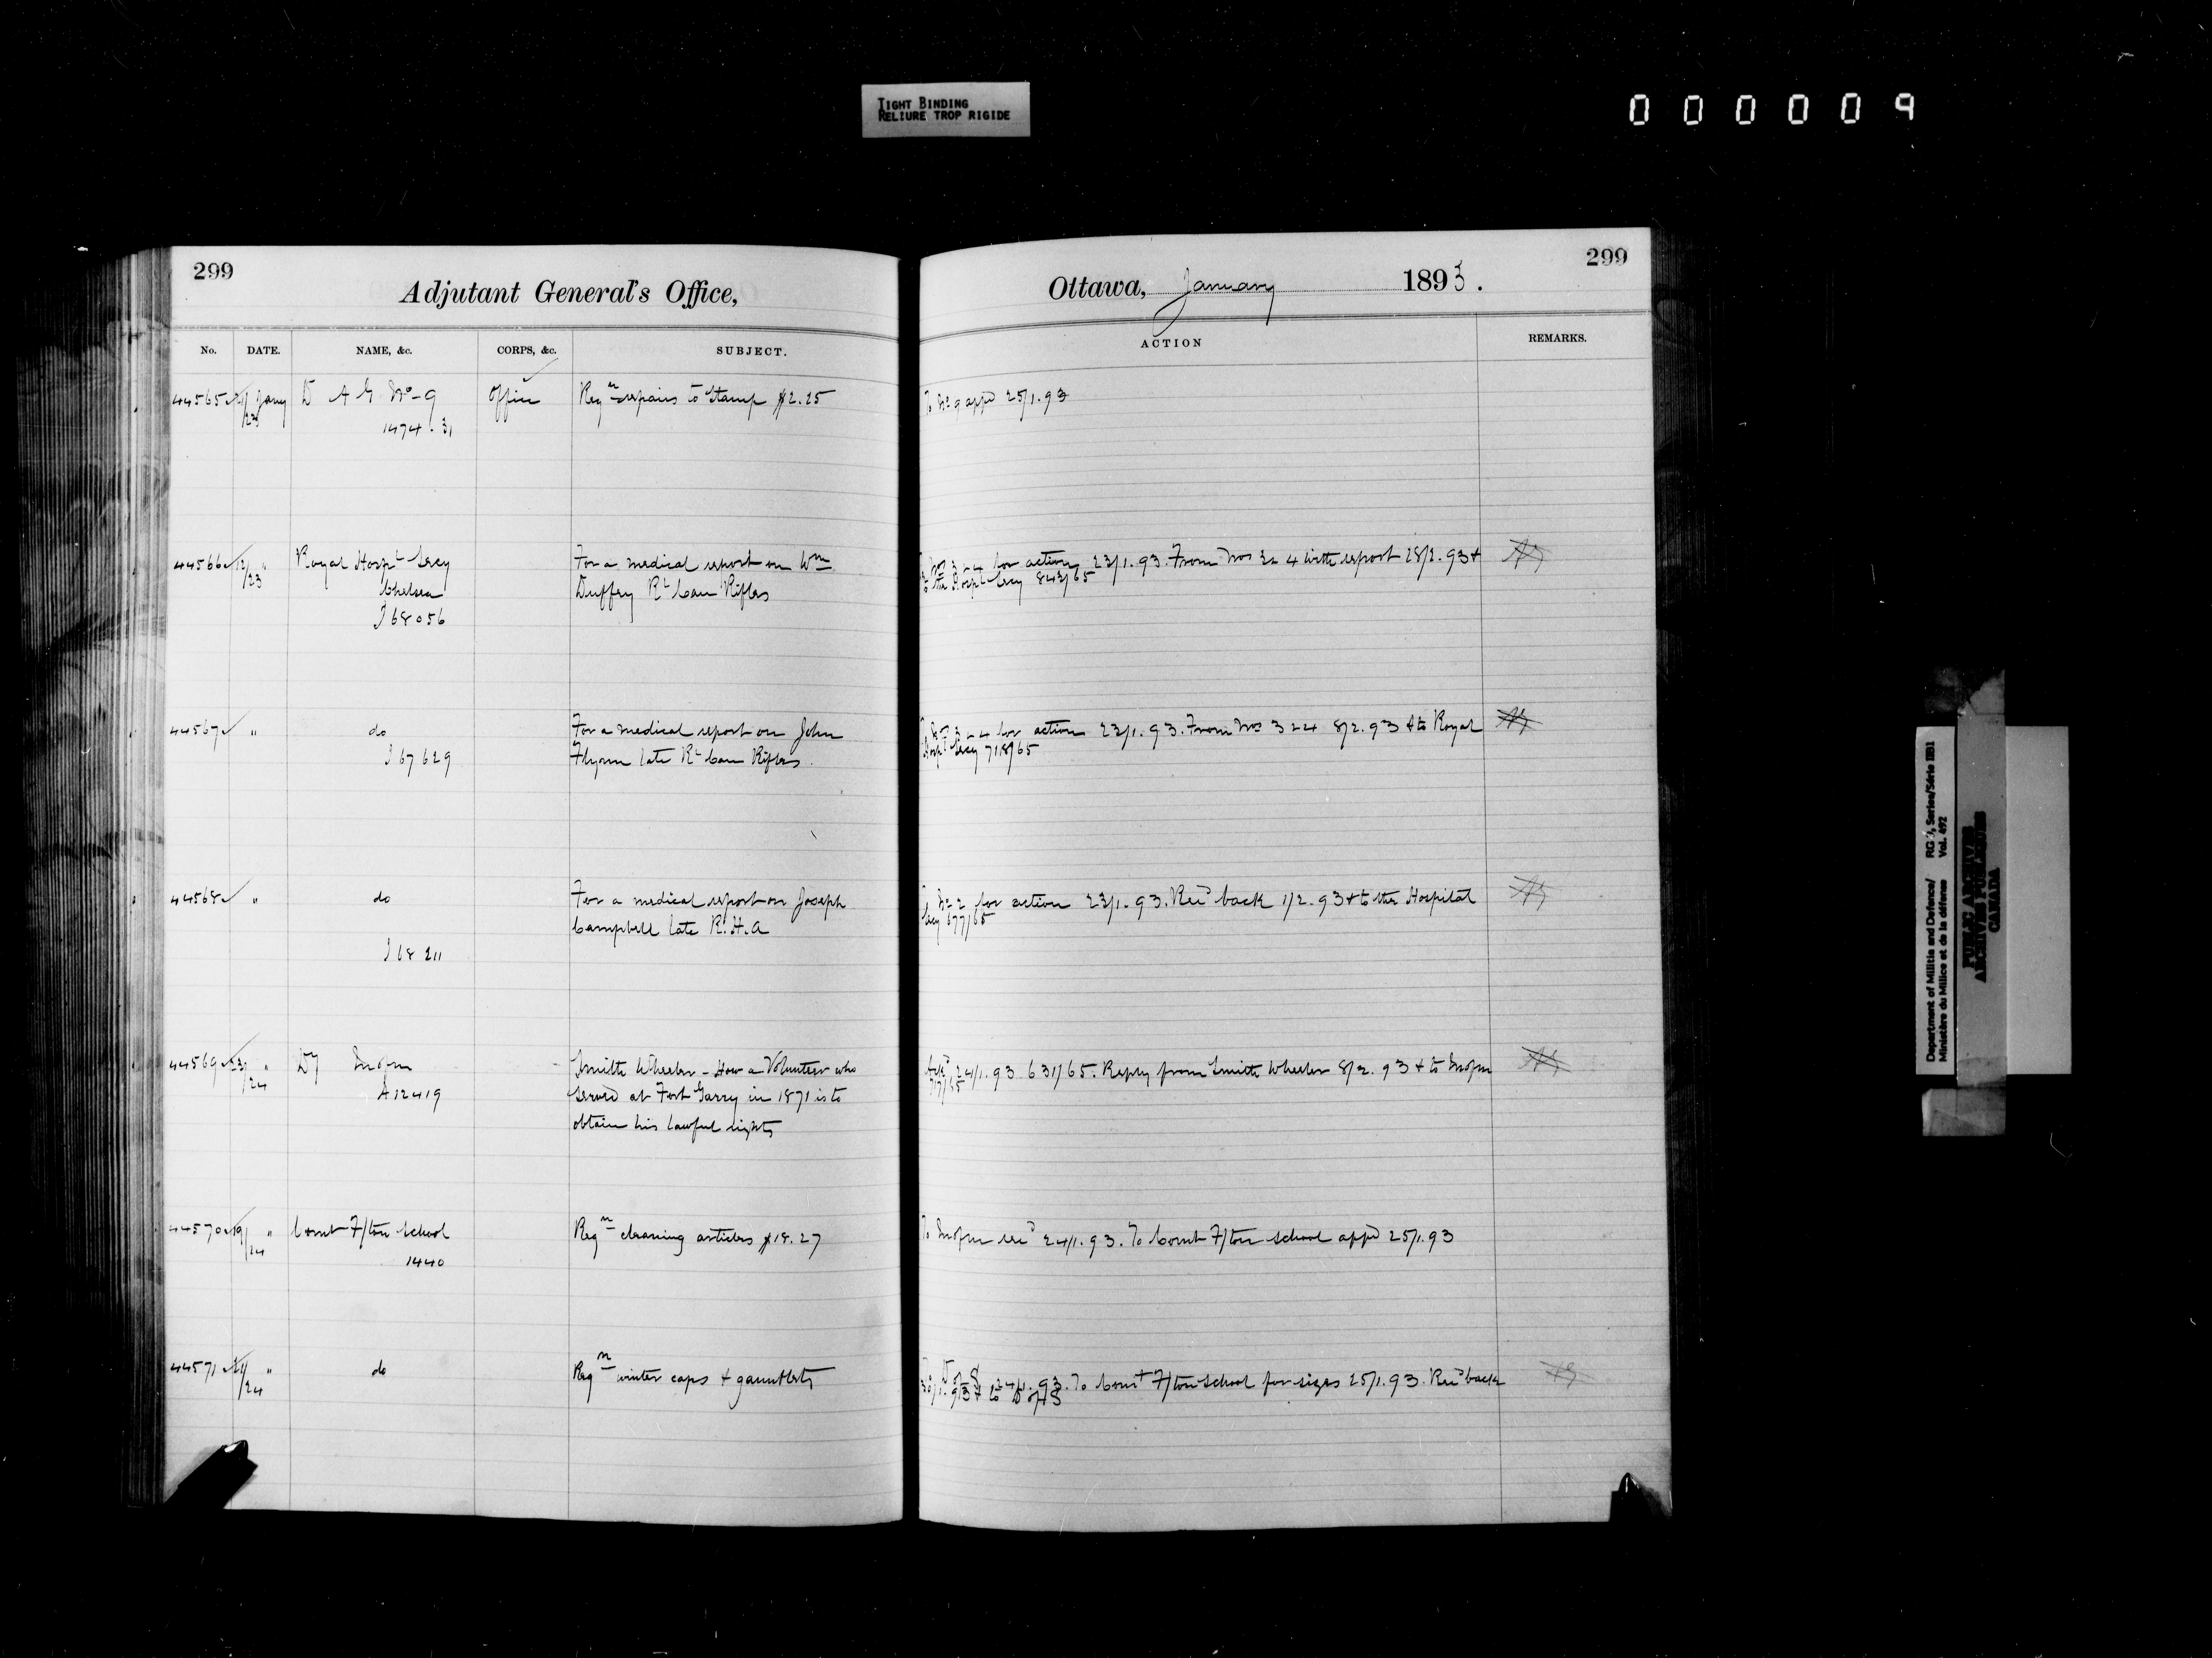 TIGHT BINDING
RELIURE TROP RIGIDE
000009
299
Adjutant General's Office,
No. DATE. NAME, &c. CORPS, &c. SUBJECT.
44565 21/23 Jany D A G No 9 Office Reqn repairs to Stamp $2.25
1474.31
44566 12/23 " Royal Hospl Secy For a medical report on Wm
Chelsea Duffey Rl Can Rifles
J 68056
44567 " do For a medical report on John
J 67629 Flynn late Rl Can Rifles
44568 " do For a medical report on Joseph
Campbell late R.H.A
J 68211
44569 23/24 " Dy Smith Wheeler - How a Volunteer who
A12419 served at Fort Garry in 1871 is to
obtain his lawful rights
44570 19/24 " Comt F/ton School Reqn cleaning articles $18.27
1440
44571 21/24 " do Reqn winter caps & gauntlets
299
Ottawa, January 1893.
ACTION REMARKS.
To No 9 appd 25/1.93
To Nos 3 & 4 for action 23/1.93. From Nos 3 & 4 with report 28/2.93 &
to the Hospl Secy 843/65
To Nos 3 & 4 for action 23/1.93. From Nos 3 & 4 8/2.93 & to Royal
Hospl Secy 718/65
To No 2 for action 23/1.93. Recd back 1/2.93 & to the Hospital
Secy 677/65
Ackd 24/1.93 631/65. Reply from Smith Wheeler 8/2.93 & to
717/65
To recd 24/1.93. To Comt F/ton School appd 25/1.93
To D of S 24/1.93. To Comt F/ton School for sizes 25/1.93. Recd back
30/1.93 & to D of S
Department of Militia and Defence/ RG 9, Series/Série IIB1
Ministère du Milice et de la défense Vol. 492
PUBLIC ARCHIVES
ARCHIVES PUBLIQUES
CANADA